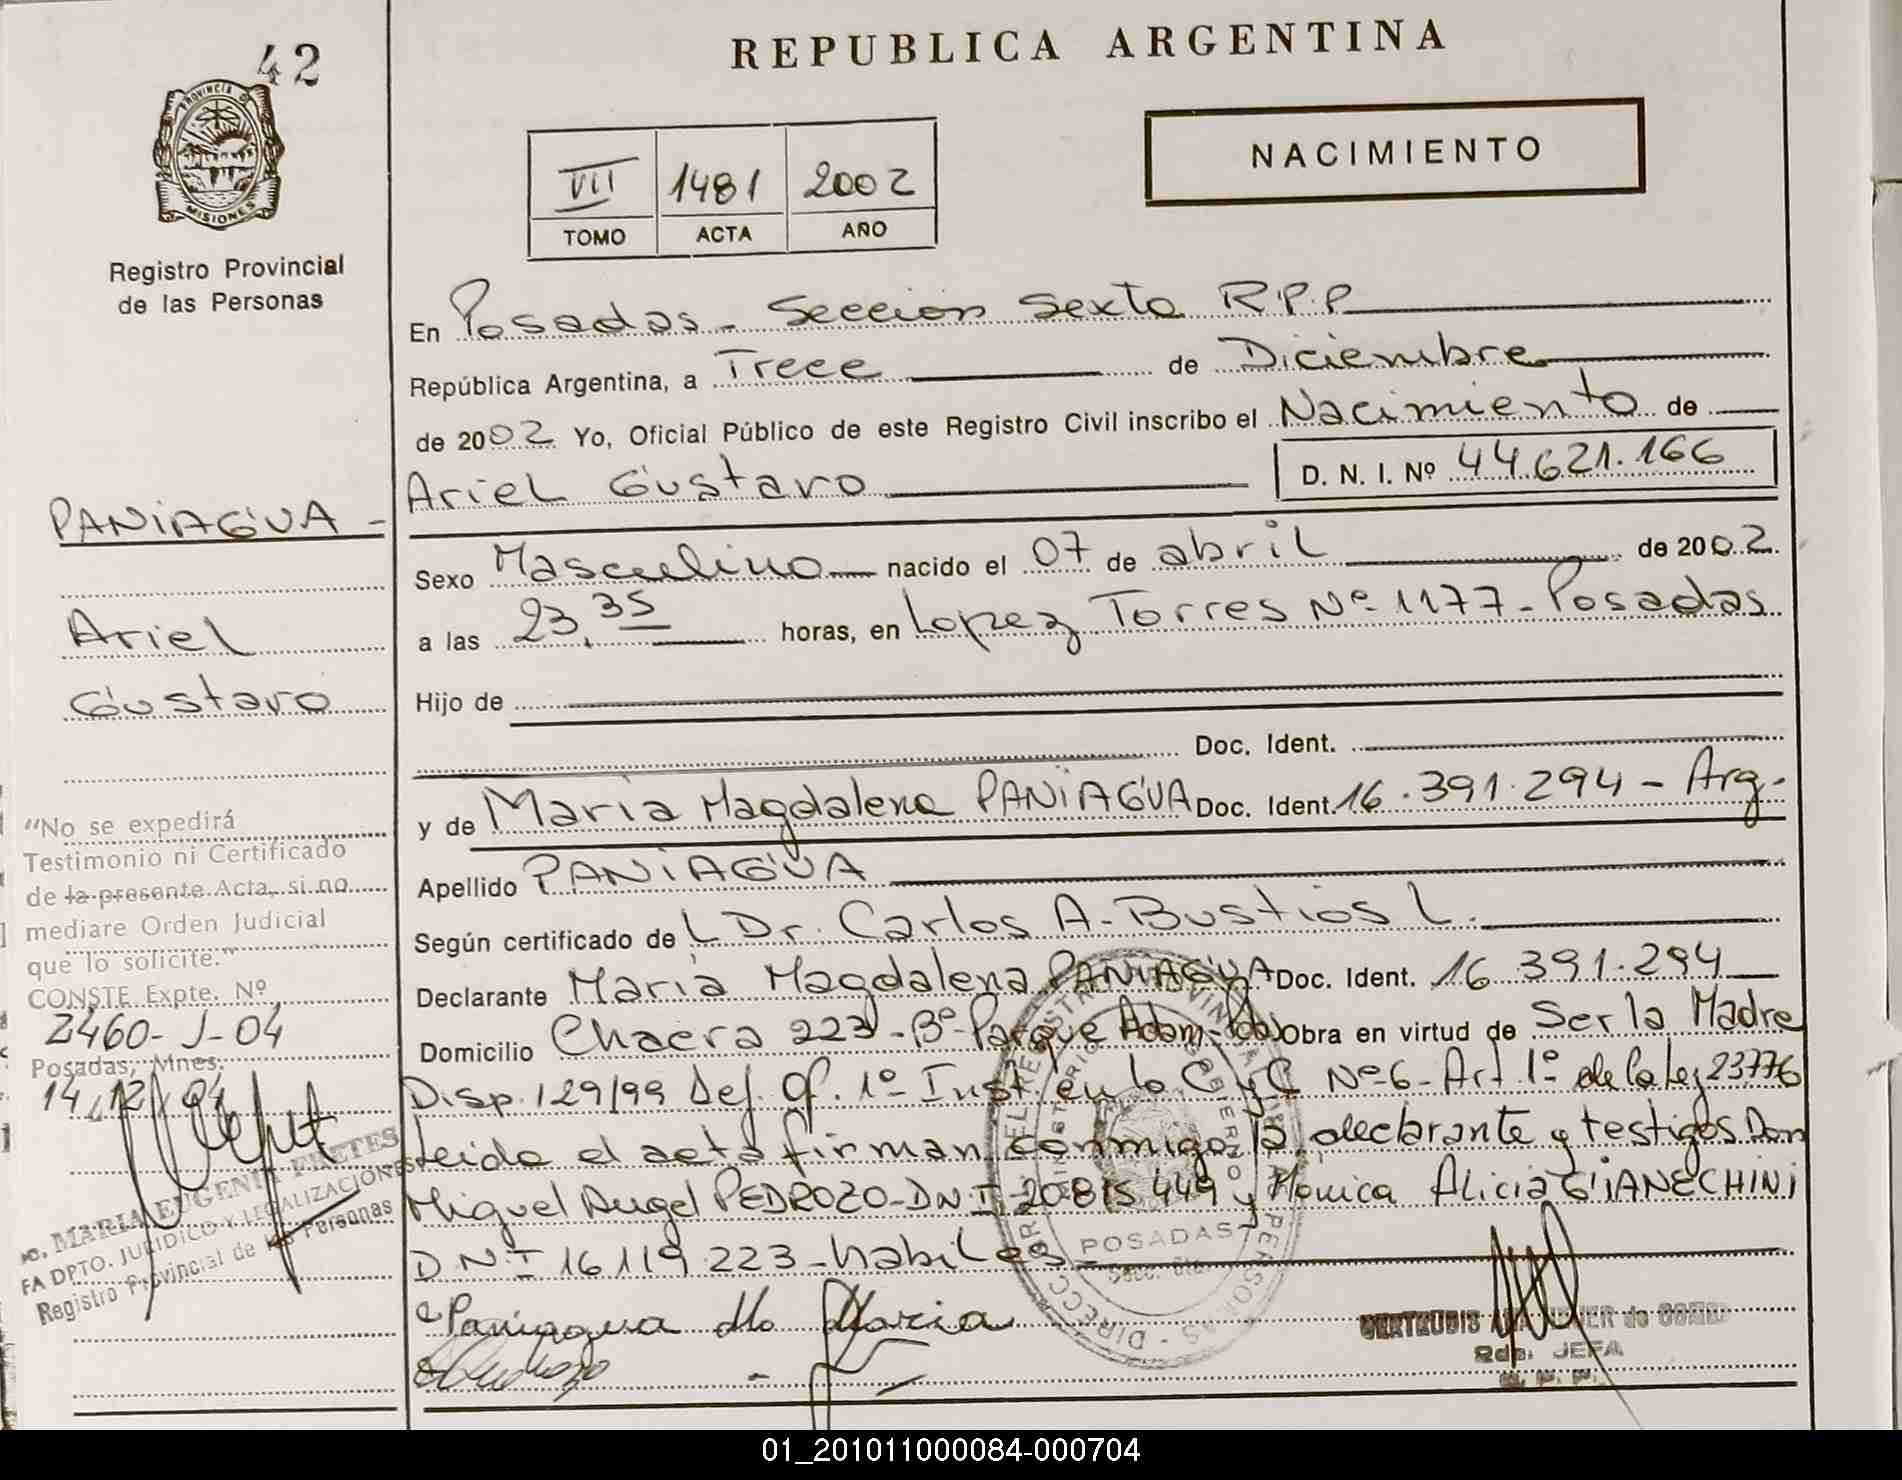 42
REPUBLICA ARGENTINA
PROVINCIA DE
MISIONES
Registro Provincial
de las Personas
VII 1481 2002
TOMO ACTA AÑO
NACIMIENTO
En Posadas - Sección Sexta R.P.P
República Argentina, a Trece de Diciembre
de 2002 Yo, Oficial Público de este Registro Civil inscribo el Nacimiento de
Ariel Gustavo D. N. I. Nº 44.621.166
PANIAGUA -
Ariel
Gustavo
Sexo Masculino nacido el 07 de abril de 2002.
a las 23,35 horas, en Lopez Torres Nº 1177 - Posadas
Hijo de
Doc. Ident.
y de Maria Magdalena PANIAGUA Doc. Ident. 16.391.294 - Arg.
Apellido PANIAGUA
Según certificado de L Dr. Carlos A. Bustios L.
Declarante Maria Magdalena PANIAGUA Doc. Ident. 16.391.294
Domicilio Chacra 223 - Bº Parque Adam - Obra en virtud de Ser la Madre
Disp. 129/99 Def. Of. 1º Inst. en lo C y C Nº 6 - Art 1º de la Ley 23776
Leida el acta firman conmigo la declarante y testigos Don
Miguel Angel PEDROZO - DN.I - 20.815.449 y Monica Alicia GIANECHINI
D.N.I 16.119.223 - habiles -
Paniagua Ma Maria
"No se expedirá
Testimonio ni Certificado
de la presente Acta, si no
mediare Orden Judicial
que lo solicite."
CONSTE Expte. Nº
2460-J-04
Posadas, Mnes.
14/12/04
MARIA EUGENIA FRETES
FA DPTO. JURIDICO Y LEGALIZACIONES
Registro Provincial de las Personas
POSADAS
GERTRUDIS
2da. JEFA
R. P. P.
01_201011000084-000704